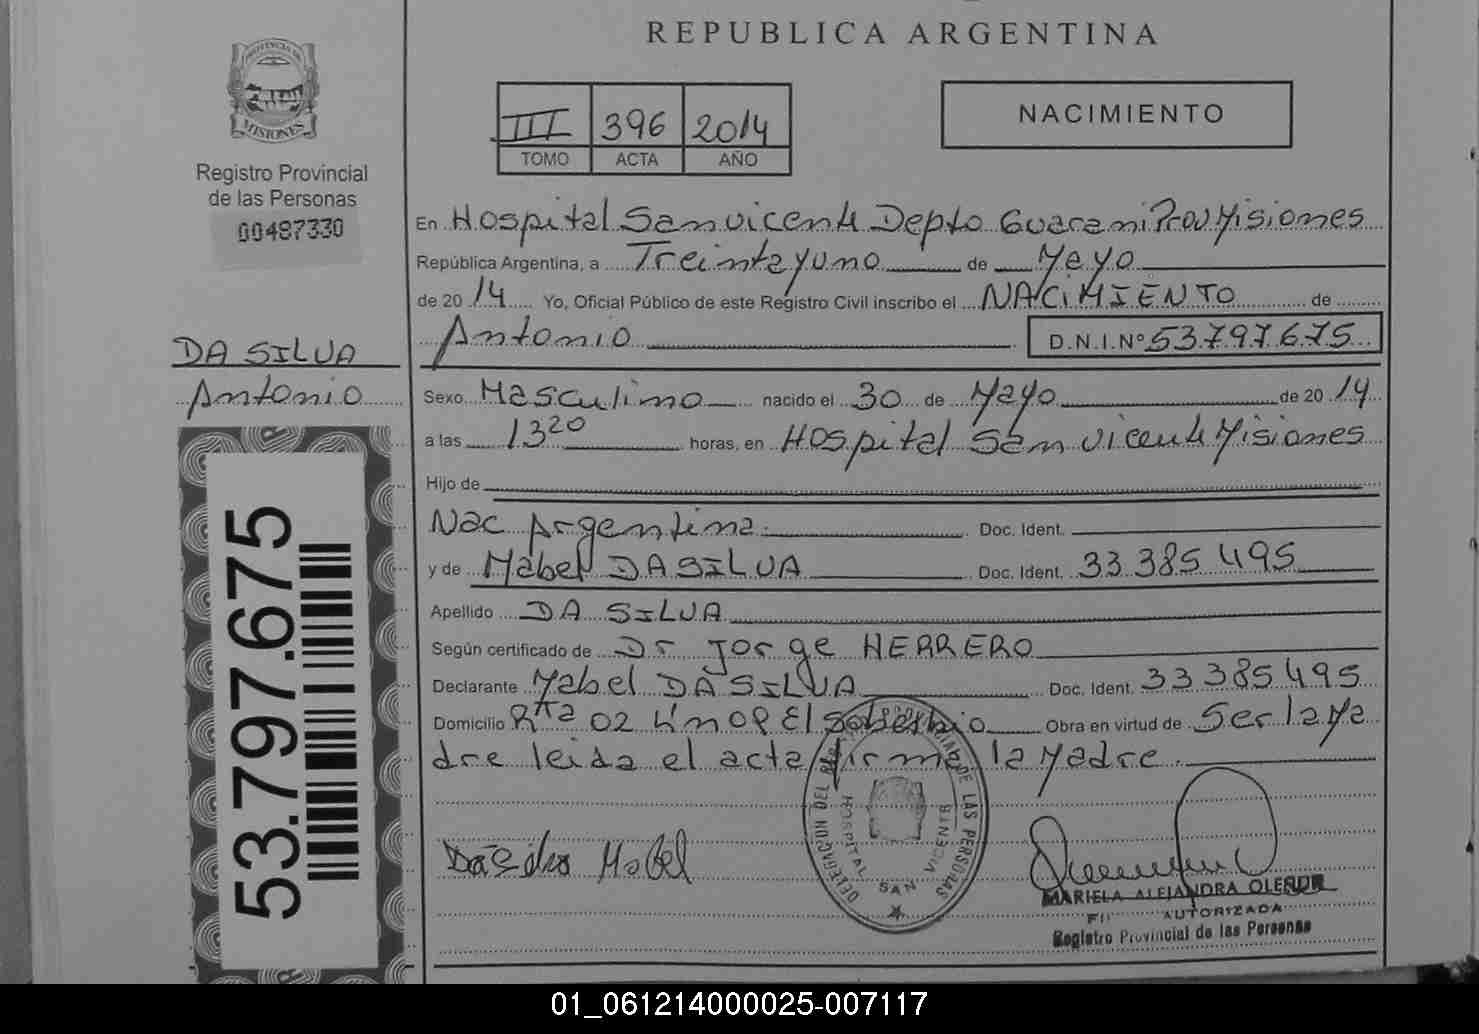 REPUBLICA ARGENTINA
PROVINCIA DE
MISIONES
Registro Provincial
de las Personas
00487330
III 396 2014
TOMO ACTA AÑO
NACIMIENTO
En Hospital San vicente Depto Guarani Prov Misiones
República Argentina, a Treinta y uno de Mayo
de 2014 Yo, Oficial Público de este Registro Civil inscribo el NACIMIENTO de
Antonio D.N.I.Nº 53.797.675
DA SILVA
Antonio
Sexo Masculino nacido el 30 de Mayo de 2014
a las 13 20 horas, en Hospital San vicente Misiones
Hijo de
Nac Argentina Doc. Ident.
y de Mabel DA SILVA Doc. Ident. 33 385 495
Apellido DA SILVA
Según certificado de Dr Jorge HERRERO
Declarante Mabel DA SILVA Doc. Ident. 33 385 495
Domicilio Rta 02 El Soberbio Obra en virtud de Ser la Ma
dre leida el acta firma la Madre
53.797.675
DELEGACION DEL REG. PROVINCIAL DE LAS PERSONAS
HOSPITAL SAN VICENTE
Mabel
MARIELA ALEJANDRA
AUTORIZADA
Registro Provincial de las Personas
01_061214000025-007117